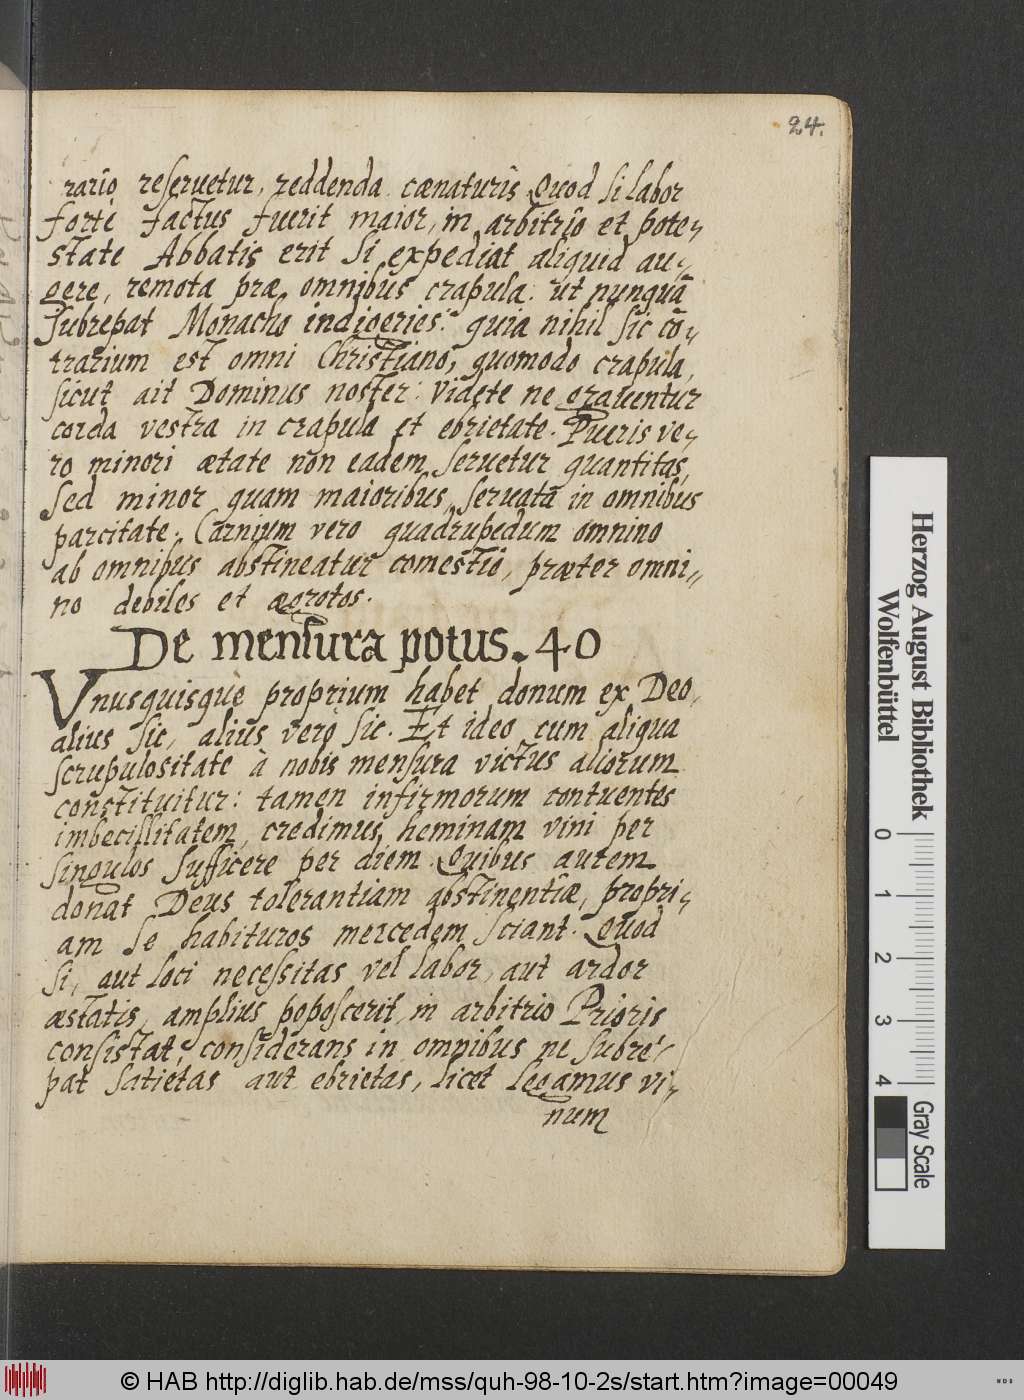 24.
rario reseruetur, reddenda cænaturis Quod si labor
forte factus fuerit maior, in arbitrio et pote,,
state Abbatis erit si expediat aliquid au,,
gere, remota præ omnibus crapula. ut nunquã
subrepat Monacho indigeries: quia nihil sic cõ,,
trarium est omni Christiano, quomodo crapula,
sicut ait Dominus noster: Videte ne grauentur
corda vestra in crapula et ebrietate. Pueris ve,,
ro minori ætate non eadem seruetur quantitas,
sed minor quam maioribus, seruata in omnibus
parcitate. Carnium vero quadrupedum omnino
ab omnibus abstineatur comestio, præter omni,,
no debiles et ægrotos.
De mensura potus. 40
Vnusquisquè proprium habet donum ex Deo,
alius sic, alius vero sic. Et ideo cum aliqua
scrupulositate à nobis mensura victus aliorum
constituitur: tamen infirmorum contuentes
imbecillitatem, credimus heminam vini per
singulos sufficere per diem. Quibus autem
donat Deus tolerantiam abstinentiæ, propri,,
am se habituros mercedem sciant. Quod
si, aut loci necessitas vel labor, aut ardor
æstatis, amplius poposcerit, in arbitrio Prioris
consistat, considerans in omnibus ne subre,,
pat satietas aut ebrietas, licet legamus vi,,
num
Herzog August Bibliothek
Wolfenbüttel
0 1 2 3 4
Gray Scale
© HAB http://diglib.hab.de/mss/quh-98-10-2s/start.htm?image=00049